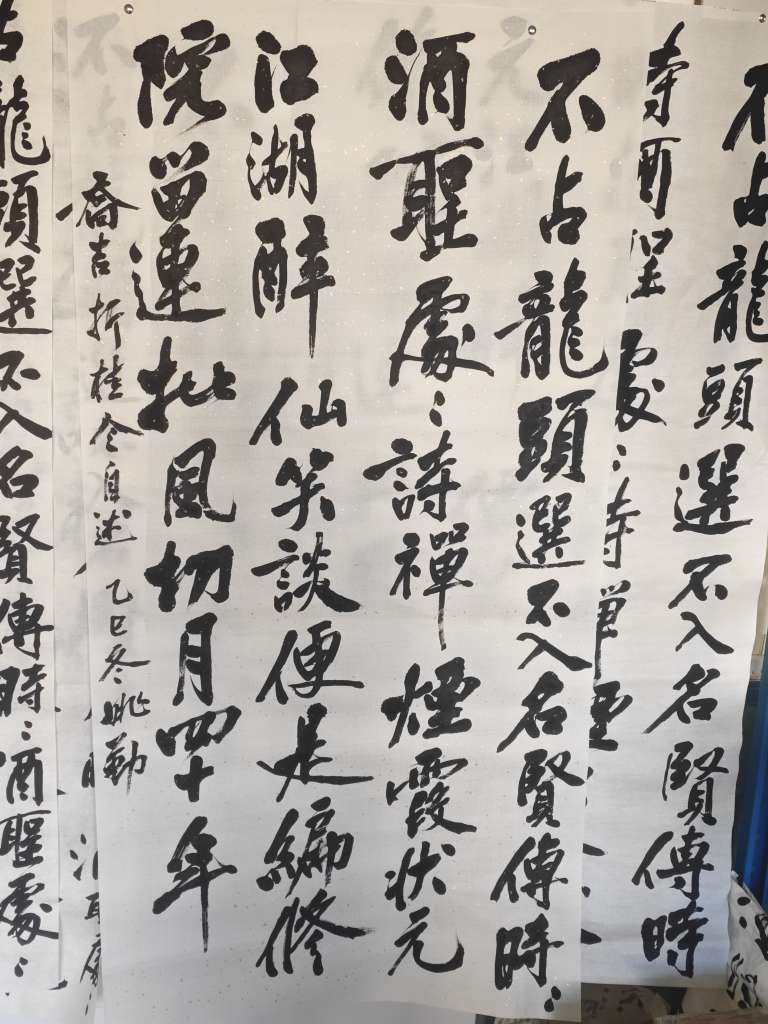 不占龍頭選不入名賢傳時
寺酉聖處:寺單
不占龍頭選不入名賢傳時:
酒聖處:詩禪煙霞状元
江湖醉仙笑談便是編修
院留連批風切月四十年
喬吉折桂令自述 乙巳冬姚勤
占龍頭選不入名賢傳時:酒聖處: